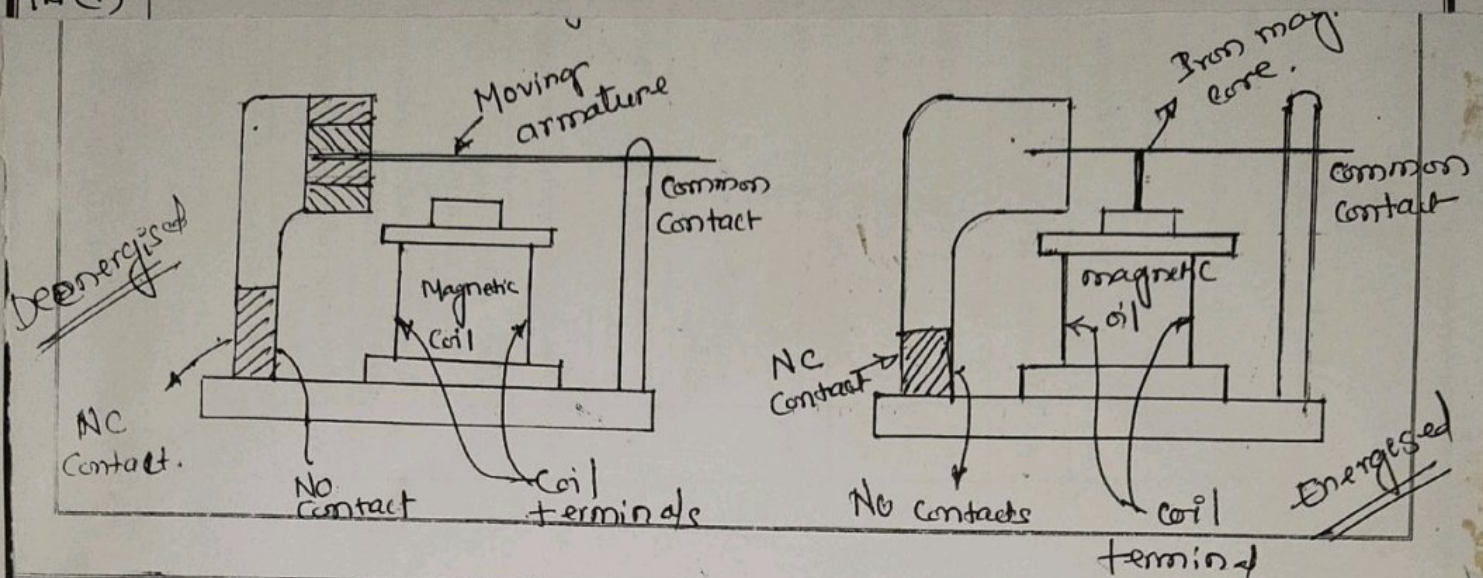 Moving
armature
Common
Contact
Deenergised
Magnetic
Coil
NC
Contact.
No
Contact
Coil
terminals
Iron mag.
core.
common
contact
magnetic
oil
NC
Contact
No contacts
coil
terminal
Energised